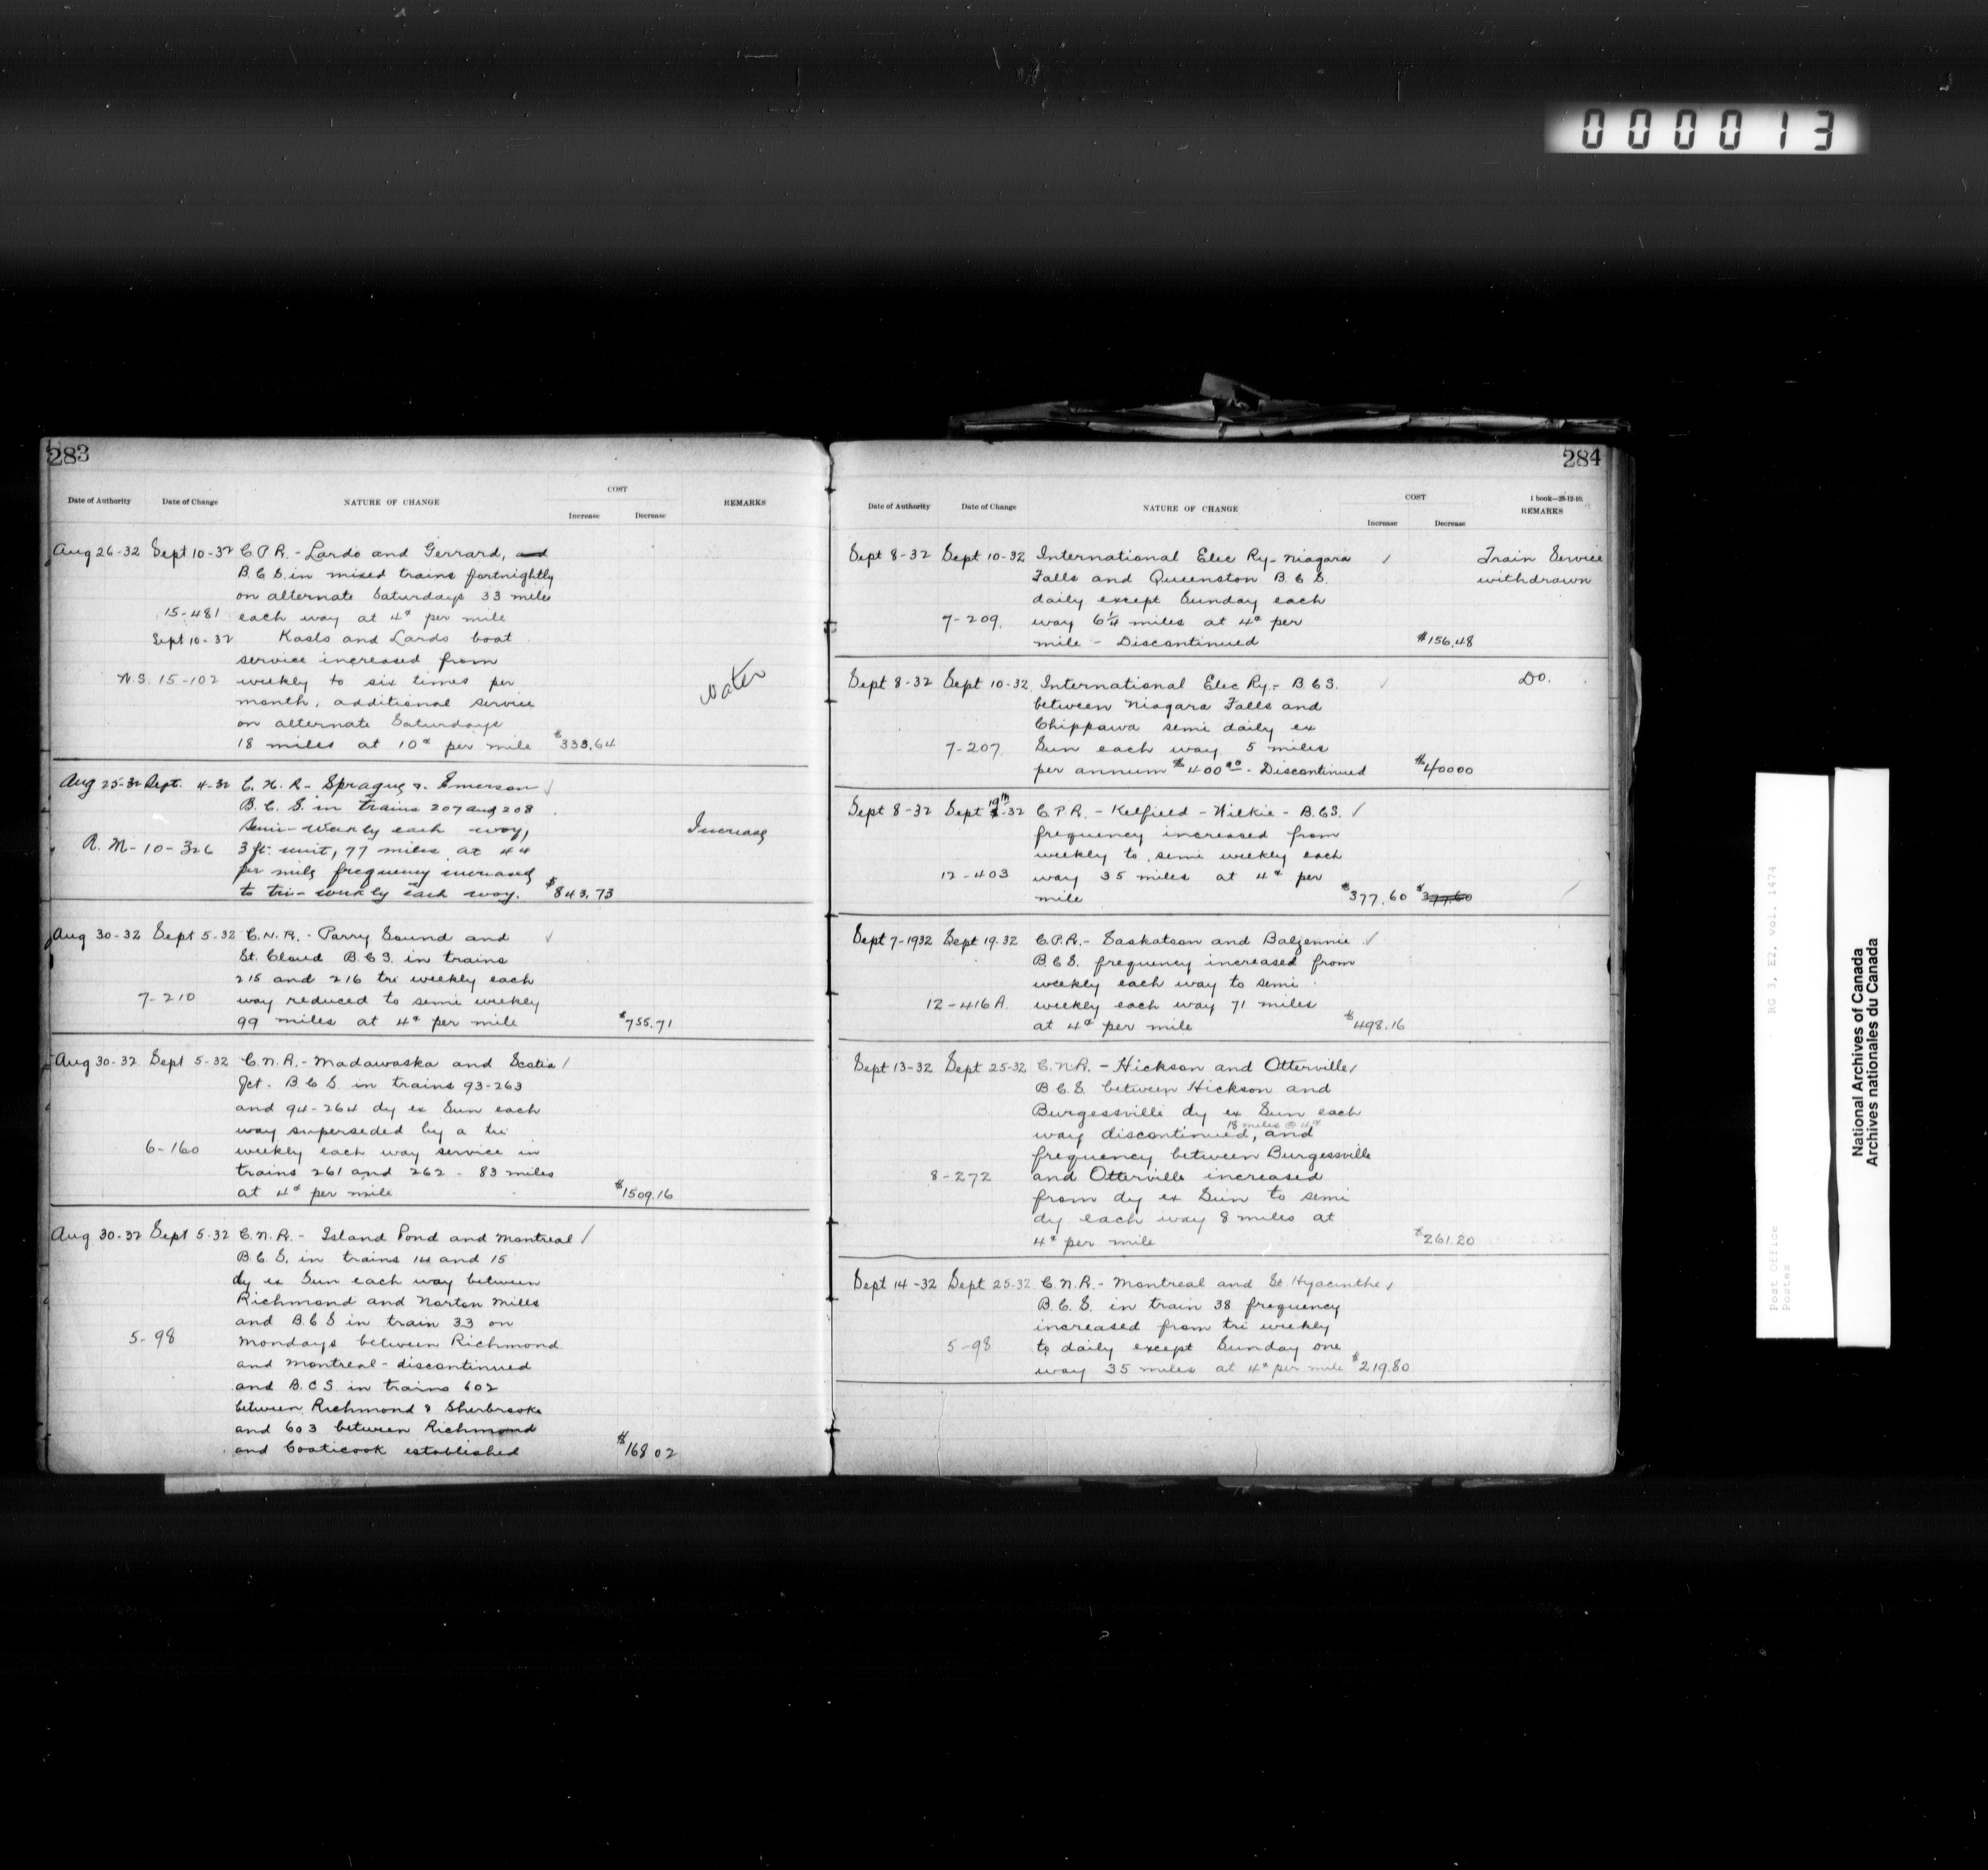 000013
283
Date of Authority Date of Change NATURE OF CHANGE COST REMARKS
Increase Decrease
Aug 26-32 Sept 10-32 C.P.R. - Lardo and Gerrard, and
B.C.S. in mixed trains fortnightly
on alternate Saturdays 33 miles
15-481 each way at 4¢ per mile
Sept 10-32 Kaslo and Lardo boat
service increased from
N.S. 15-102 weekly to six times per
month, additional service
on alternate Saturdays
18 miles at 10¢ per mile $333.64
water
Aug 25-32 Sept. 4-32 C.N.R - Sprague & Emerson √
B.C.S. in trains 207 and 208
semi-weekly each way,
R.M-10-326 3 ft. unit, 77 miles at 4¢
per mile frequency increased
to tri-weekly each way. $843.73
Increase
Aug 30-32 Sept 5-32 C.N.R. - Parry Sound and √
St. Cloud B.C.S. in trains
215 and 216 tri weekly each
7-210 way reduced to semi weekly
99 miles at 4¢ per mile $755.71
Aug 30-32 Sept 5-32 C.N.R. - Madawaska and Scotia /
Jct. B.C.S. in trains 93-263
and 94-264 dy ex Sun each
way superseded by a tri
6-160 weekly each way service in
trains 261 and 262 - 83 miles
at 4¢ per mile $1509.16
Aug 30-32 Sept 5-32 C.N.R. - Island Pond and Montreal /
B.C.S. in trains 14 and 15
dy ex Sun each way between
Richmond and Norton Mills
and B.C.S in train 33 on
5-98 Mondays between Richmond
and Montreal - discontinued
and B.C.S. in trains 602
between Richmond & Sherbrooke
and 603 between Richmond
and Coaticook established $168 02
284
Date of Authority Date of Change NATURE OF CHANGE COST 1 book—28-12-10.
REMARKS
Increase Decrease
Sept 8-32 Sept 10-32 International Elec Ry - Niagara / Train Service
Falls and Queenston B.C.S. withdrawn
daily except Sunday each
7-209. way 6¼ miles at 4¢ per
mile - Discontinued $156.48
Sept 8-32 Sept 10-32 International Elec Ry. - B.C.S. √ Do.
between Niagara Falls and
Chippawa semi daily ex
7-207 Sun each way 5 miles
per annum $400.00 - Discontinued $40000
Sept 8-32 Sept 19th-32 C.P.R. - Kelfield - Wilkie - B.C.S. /
frequency increased from
weekly to semi weekly each
12-403 way 35 miles at 4¢ per
mile $377.60 $377.60
Sept 7-1932 Sept 19-32 C.P.R. - Saskatoon and Baljennie √
B.C.S. frequency increased from
weekly each way to semi
12-416A. weekly each way 71 miles
at 4¢ per mile $498.16
Sept 13-32 Sept 25-32 C.N.R. - Hickson and Otterville /
B.C.S. between Hickson and
Burgessville dy ex Sun each
18 miles @ 4¢
way discontinued, and
frequency between Burgessville
8-272 and Otterville increased
from dy ex Sun to semi
dy each way 8 miles at
4¢ per mile $261.20
Sept 14-32 Sept 25-32 C.N.R. - Montreal and St Hyacinthe /
B.C.S. in train 38 frequency
increased from tri weekly
5-98 to daily except Sunday one
way 35 miles at 4¢ per mile $219.80
Post Office RG 3, E2, vol. 1474
Postes
National Archives of Canada
Archives nationales du Canada